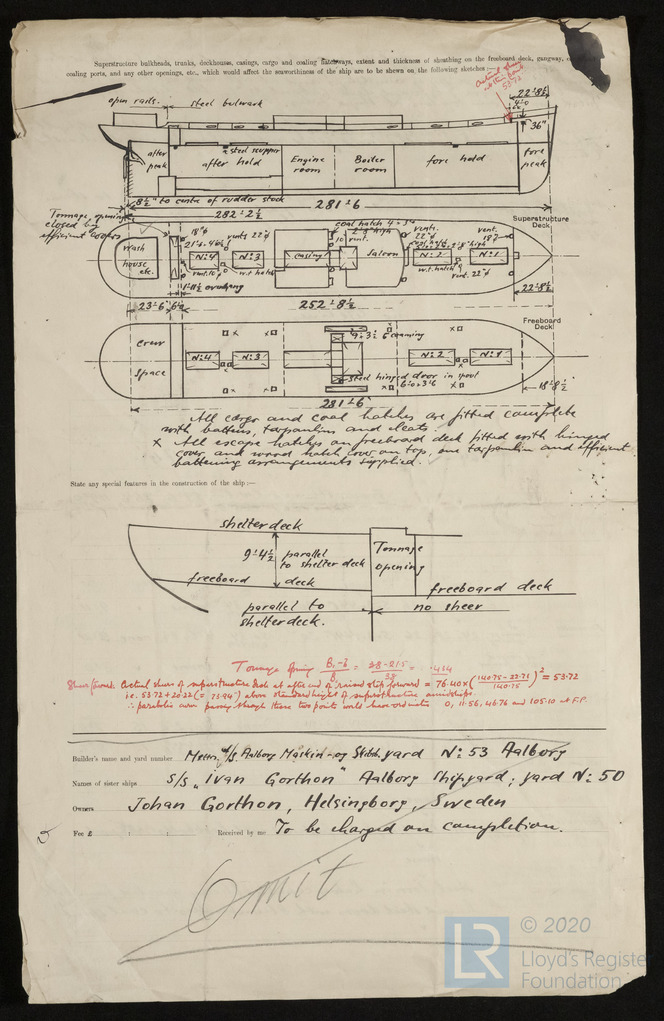 Superstructure bulkheads, trunks, deckhouses, casings, cargo and coaling hatchways, extent and thickness of sheathing on the freeboard deck, gangway,
coaling ports, and any other openings, etc., which would affect the seaworthiness of the ship are to be shewn on the following sketches:—
53.72
22'-8½"
open rails.
steel bulwark
36"
after peak
steel scupper
after hold
Engine room
Boiler room
fore hold
fore peak
8½" to centre of rudder stock
281'-6
282'-2½
Tonnage opening closed by efficient covers
Superstructure Deck
wash house etc.
18"φ
vents 22"φ
No 4
No 3
w.t. hatch
casing
coal hatch
vent.
Saloon
vents. 22"φ
No 2
No 1
w.t. hatch
vent. 22"φ
vent. 18"φ
1'-11½ overhang
22'-8½
23'-6
252'-8½
Freeboard Deck
Crew space
No 4
No 3
coaming
No 2
No 1
steel hinged door in spout
6'-0 × 3'-6
18'-8½
281'-6"
All cargo and coal hatches are fitted complete
with battens, tarpaulins and cleats.
× All escape hatches on freeboard deck fitted with hinged
cover and wood hatch cover on top, one tarpaulin and efficient
battening arrangements supplied.
State any special features in the construction of the ship :—
shelter deck
9'-4½
parallel to shelter deck
Tonnage opening
freeboard deck
freeboard deck
parallel to shelter deck.
no sheer
Tonnage Opening
Sheer forward. Actual sheer of superstructure deck at after end of raised sheer forward = 76.40 × (140.75 - 22.71 / 140.75)² = 53.72
i.e. 53.72 + 20.22 (= 73.94") above standard height of superstructure amidships.
∴ parabolic curve passing through these two points would have ordinates 0, 11.56, 46.76 and 105.10 at F.P.
Builder's name and yard number Messrs. A/S Aalborg Maskin- og Skibb. yard No 53 Aalborg
Names of sister ships S/S "Ivan Gorthon" Aalborg Shipyard; yard No 50
Owners Johan Gorthon, Helsingborg, Sweden
Fee £ : : Received by me To be charged on completion.
Omit
LR
© 2020
Lloyd's Register
Foundation